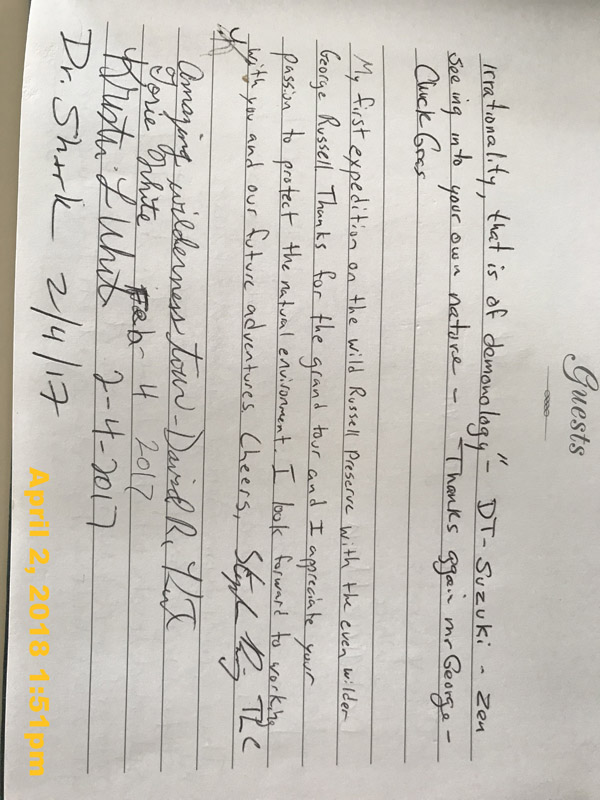 Guests
Irrationality, that is of demonology" - DT-Suzuki - Zen
Seeing into your own nature - Thanks again mr George -
Chuck
My first expedition on the wild Russell Preserve with the even wilder
George Russell. Thanks for the grand tour and I appreciate your
passion to protect the natural environment. I look forward to working
with you and our future adventures. Cheers, TLC
Amazing wilderness tour - David R.
Josie White Feb - 4 2017
Kristi L White 2-4-2017
Dr. Shark 2/4/17
April 2, 2018 1:51pm